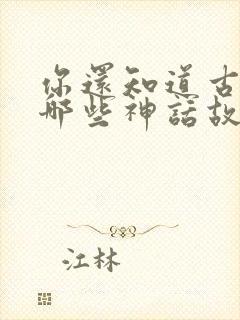 你還知道古
哪些神話故
江林